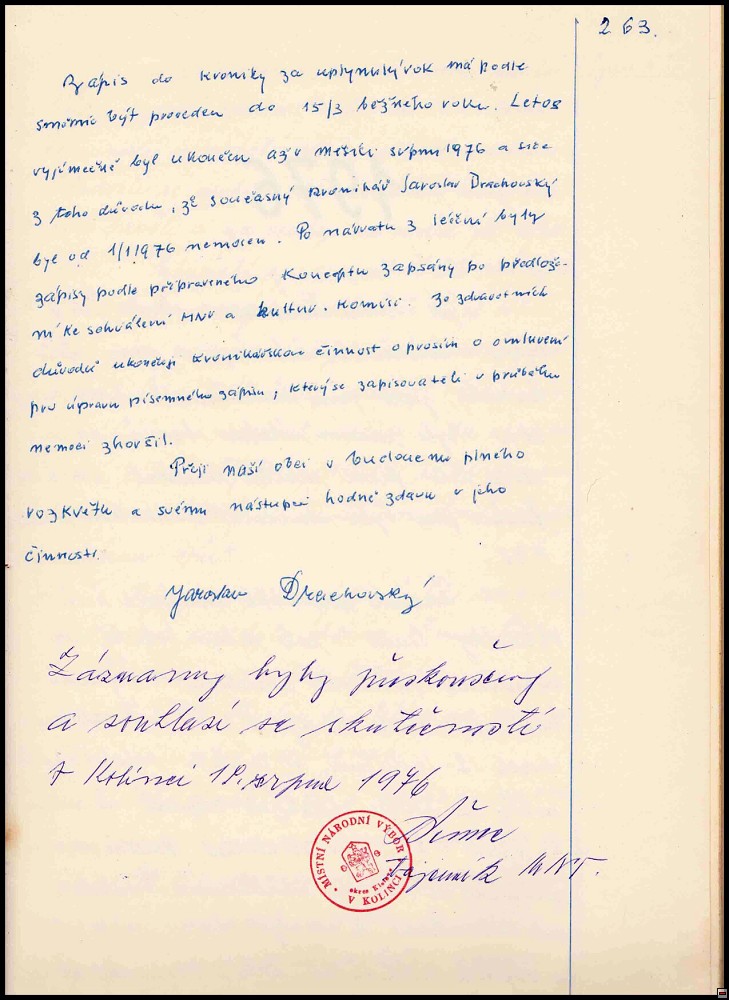 263.
Zápis do kroniky za uplynulý rok má podle
směrnic být proveden do 15/3 běžného roku. Letos
vyjímečně byl ukončen až v měsíci srpnu 1976 a sice
z toho důvodu, že současný kronikář Jaroslav Drachovský
byl od 1/1 1976 nemocen. Po návratu z léčení byly
zápisy podle připraveného konceptu zapsány po předlože-
ní ke schválení MNV a kultur. komisi. Ze zdravotních
důvodů ukončuji kronikářskou činnost a prosím o omluvení
pro úpravu písemného zápisu, který se zapisovateli v průběhu
nemoci zhoršil.
Přeji naší obci v budoucnu plného
rozkvětu a svému nástupci hodně zdaru v jeho
činnosti.
Jaroslav Drachovský
Záznamy byly přezkoušeny
a souhlasí se skutečností
V Kolinci 18. srpna 1976
tajemník MNV.
MÍSTNÍ NÁRODNÍ VÝBOR
okres Klatovy
V KOLINCI